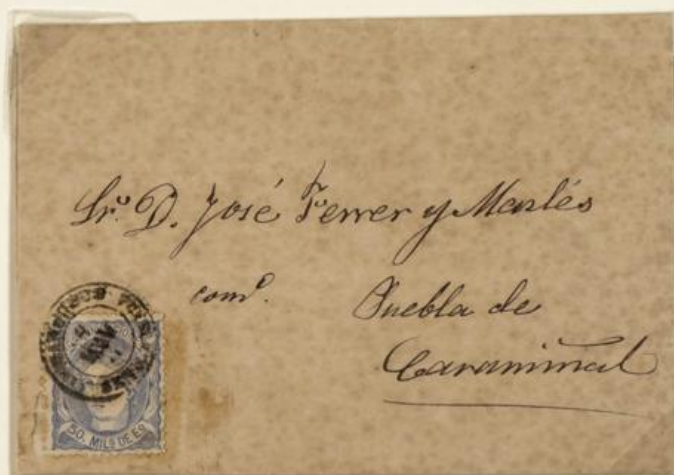 Sr. D. José Ferrer y Marlés
com.º
Puebla de
Caramiñal
NOV
50. MILS DE EO